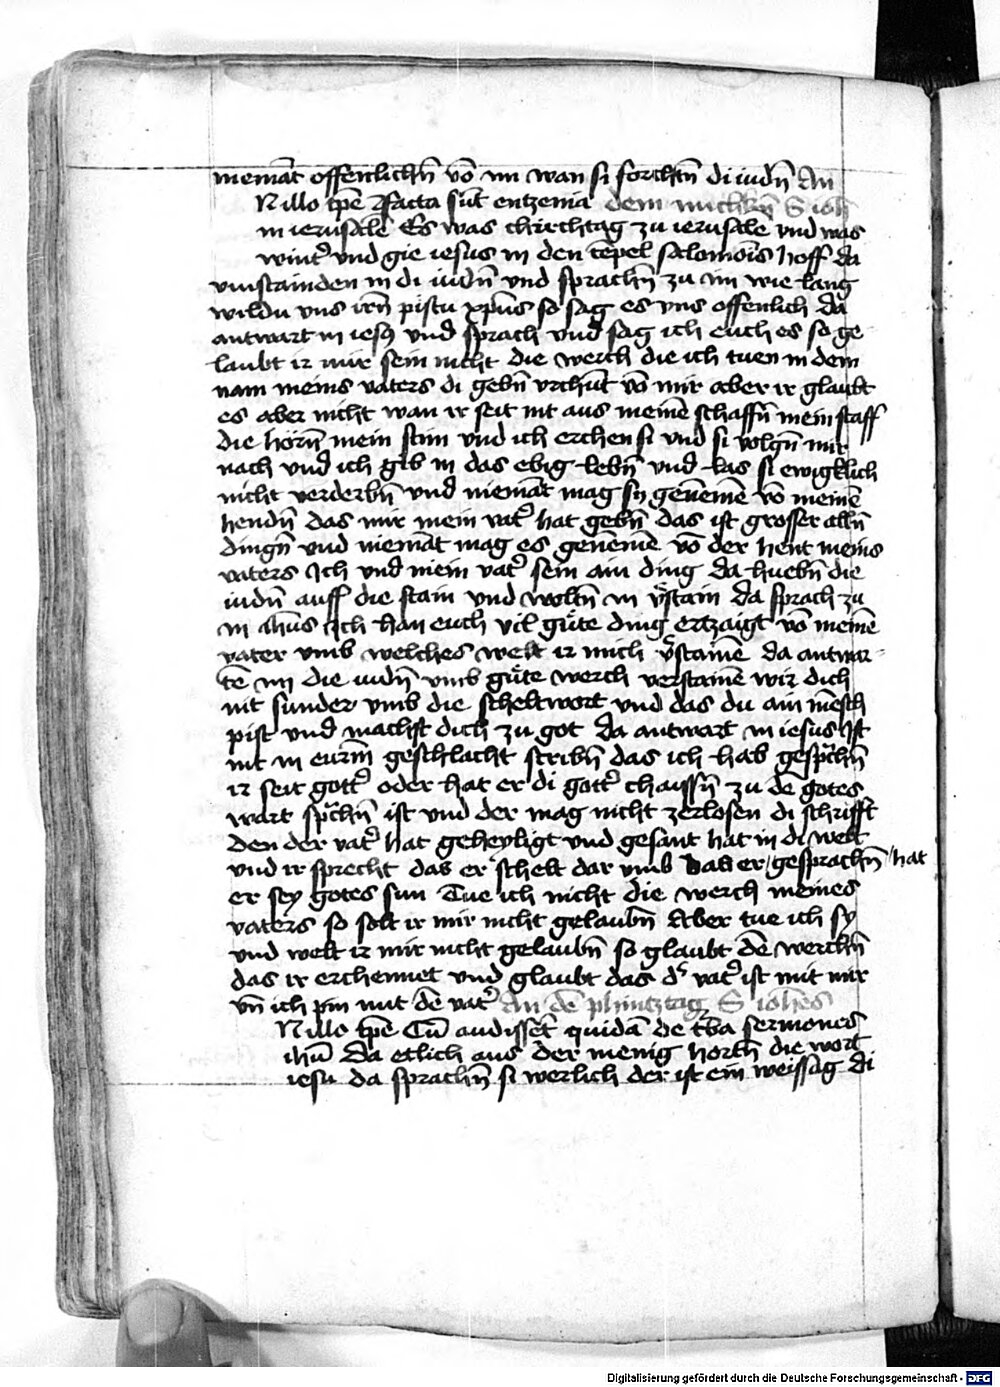 niemāt offenlichn̄ vō im wan si forchtn̄ di iudn̄ An
N illo tp̄e Ꝯfacta sūt entzenia dem mitichn̄ S ioh
in ierusalē Es was chirchtag zu ierusalē vnd was
wint᷑ vnd gie iesus in den tēpel salomōis hoff da
vmstainden in di iudn̄ vnd sprachn̄ zu im wie lang
wildu vns irn̄ pistu xp̄us so sag es vns offenlich da
antwart in iesꝰ vnd sprach vnd sag ich euch es so ge
laubt ir mir sein nicht die werch die ich tuen in dem
nam meins vaters di gebn̄ vrchūt vō mir aber ir glaubt
es aber nicht wan ir seit nit aus meinē schaffn̄ mein staff
die hörn̄ mein stim vnd ich erchen si vnd si volgn̄ mir
nach vnd ich gib in das ebig lebn̄ vnd las si ewigklich
nicht verderbn̄ vnd niemāt mag sy genemē vō meinē
hendn̄ das mir mein vat᷑ hat gebn̄ das ist grosser alln̄
dingn̄ vnd niemāt mag es genemē vō der hent meins
vaters Ich vnd mein vat᷑ sein ain ding da huebn̄ die
iudn̄ auff die stain vnd woltn̄ in v᷑stain da sprach zu
in ihūs Ich han euch vil gůte ding ertzaigt vō meinē
vater vmb welches welt ir mich v᷑stainē da antwar
tē im die iudn̄ vmb gůte werch verstainē wir dich
nit sunder vmb die scheltwort vnd das du ain mēsch
pist vnd machst dich zu got da antwart in iesus Ist
nit in eurm̄ geschlacht scribn̄ das ich hab gespᷓchn̄
ir seit gott᷑ oder hat er di gott᷑ chaissn̄ zu dē gotes
wart spᷓchn̄ ist vnd der mag nicht zerlosen di schrifft
den der vat᷑ hat geheyligt vnd gesant hat in di welt
vnd ir sprecht das er schelt dar vmb das er gesprachn̄ hat
er sey gotes sun Tue ich nicht die werch meines
vaters so solt ir mir nicht gelaubn̄ Aber tue ich sy
vnd welt ir mir nicht gelaubn̄ so glaubt dē werchn̄
das ir erchennet vnd glaubt das d᷑ vat᷑ ist mit mir
vn̄ ich pin mit dē vat᷑ An dē phintztag S iohēs
N illo tp̄e Cū audissēt quidā de t᷑ba sermones
ihū Da etlich aus der menig hortn̄ die wort
iesu da sprachn̄ si werlich der ist ein weissag di
Digitalisierung gefördert durch die Deutsche Forschungsgemeinschaft - DFG